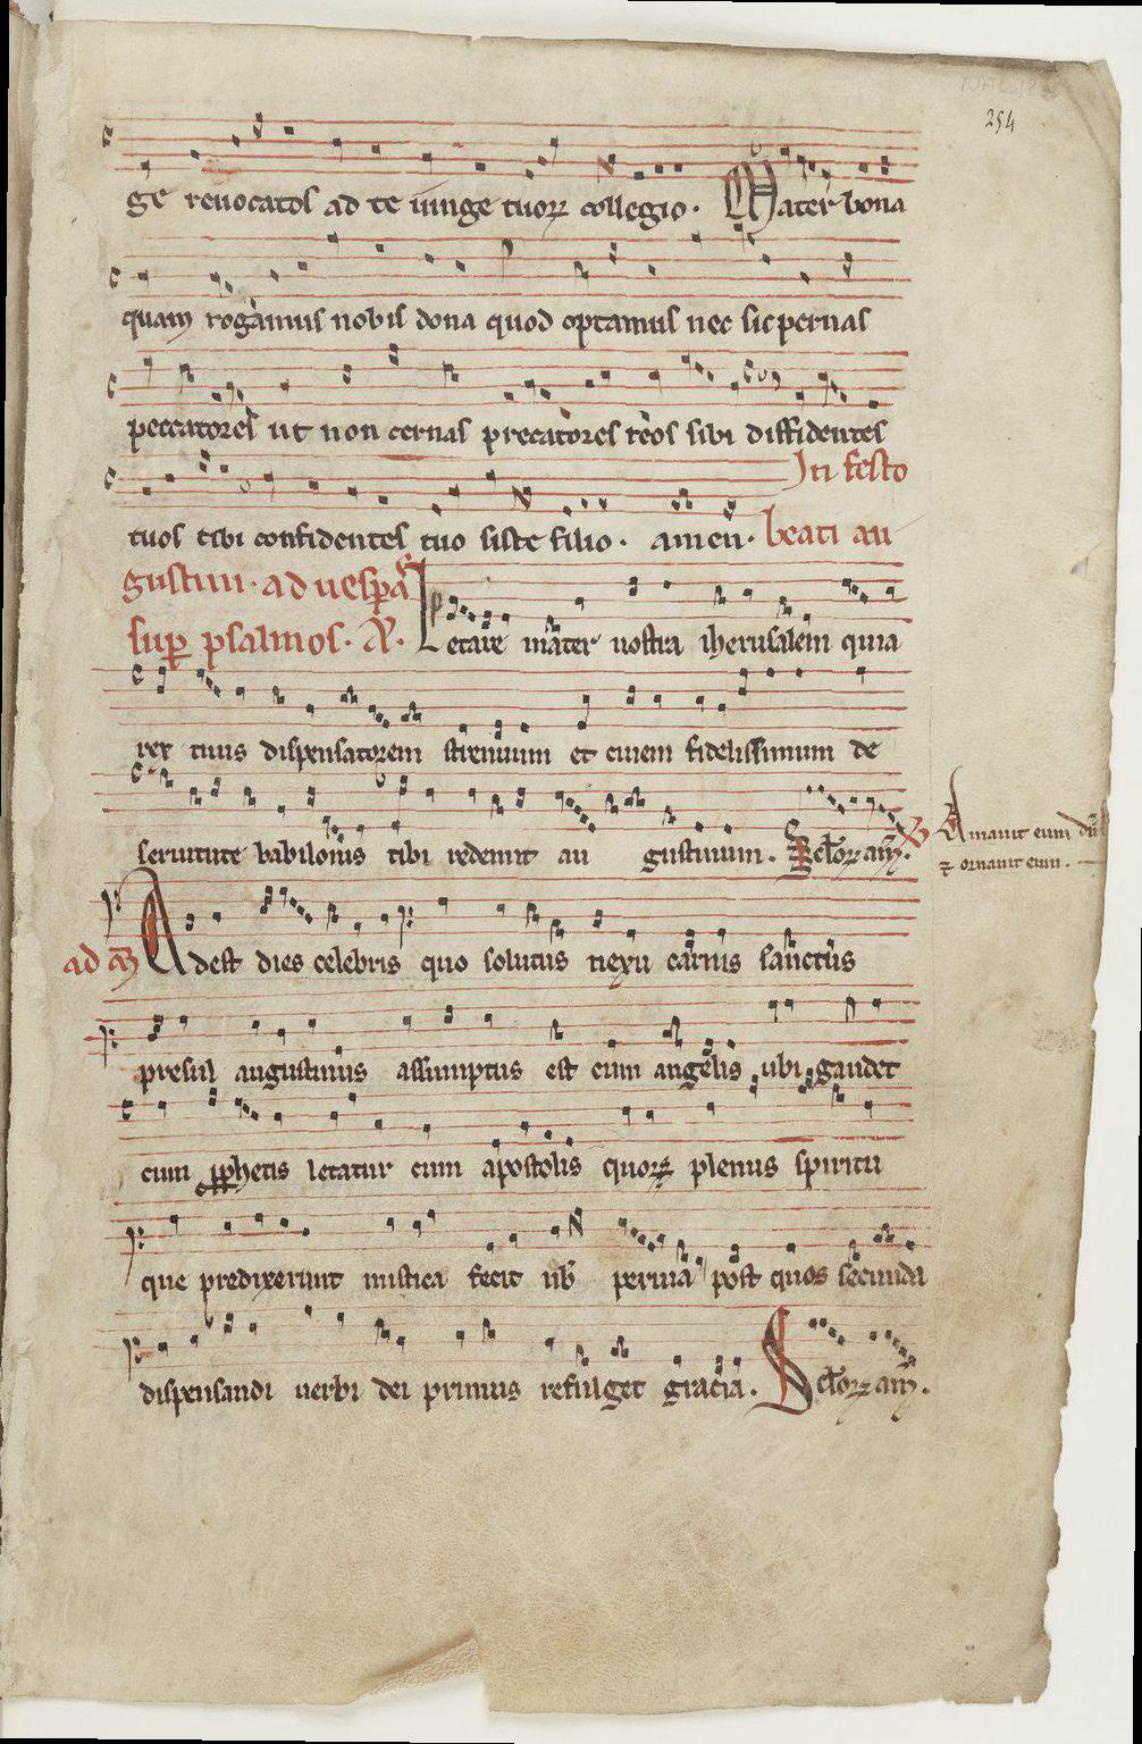 254
ge reuocatos ad te iunge tuoꝝ collegio. Mater bona
quam rogamus nobis dona quod optamus nec sic spernas
peccatores ut non cernas precatores reos sibi diffidentes
In festo
tuos tibi confidentes tuo siste filio. amen. beati au
gustini. ad uesꝑas
suꝑ psalmos. A.
Letare mater nostra iherusalem quia
rex tuus dispensatorem strenuum et ciuem fidelissimum de
seruitute babilonis tibi redemit au gustinum. Sclo͛ꝝ am̄.
Amauit eum dn̄s
⁊ ornauit eum.
ad am̄ Adest dies celebris quo solutus nexu carnis sanctus
presul augustinus assumptus est cum angelis ubi gaudet
cum ꝓphetis letatur cum apostolis quoꝝ plenus spiritu
que predixerunt mistica fecit nob̄ peruia post quos secunda
dispensandi uerbi dei primus refulget gracia. Sclo͛ꝝ am̄.